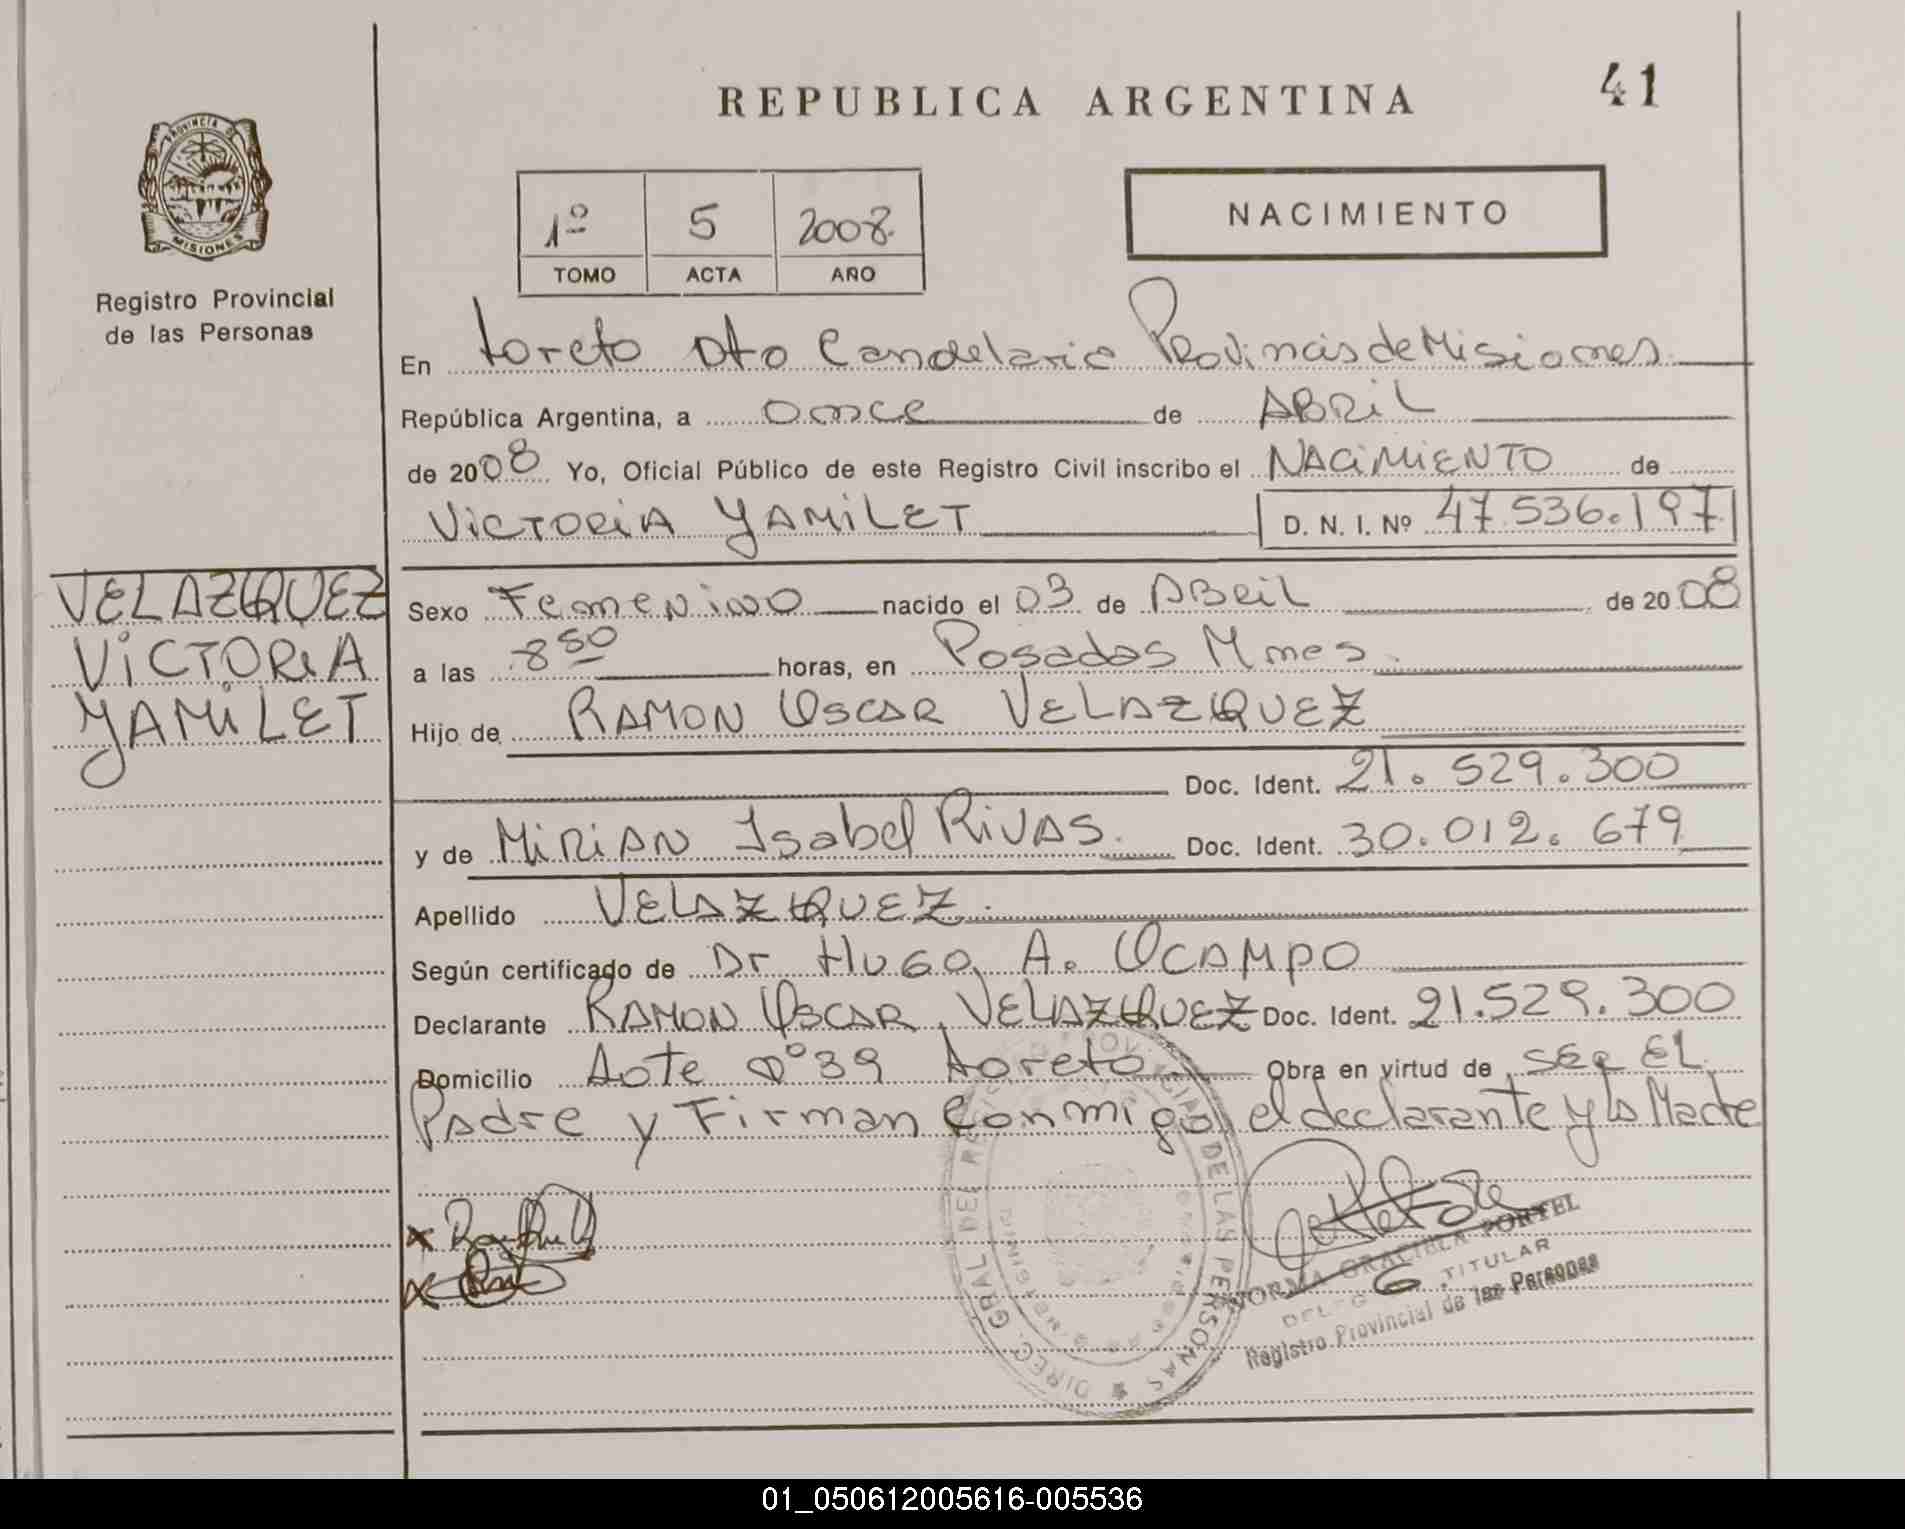 REPUBLICA ARGENTINA
41
PROVINCIA DE
MISIONES
Registro Provincial
de las Personas
1º 5 2008.
TOMO ACTA AÑO
NACIMIENTO
En Loreto Dto Candelaria Provincia de Misiones
República Argentina, a once de ABRIL
de 2008 Yo, Oficial Público de este Registro Civil inscribo el NACIMIENTO de
VICTORIA YAMILET D. N. I. Nº 47.536.197
VELAZQUEZ
VICTORIA
YAMILET
Sexo Femenino nacido el 03 de ABRIL de 2008
a las 8 50 horas, en Posadas Mnes.
Hijo de RAMON OSCAR VELAZQUEZ
Doc. Ident. 21.529.300
y de MIRIAN Isabel RIVAS. Doc. Ident. 30.012.679
Apellido VELAZQUEZ.
Según certificado de Dr HUGO A. OCAMPO
Declarante RAMON OSCAR VELAZQUEZ Doc. Ident. 21.529.300
Domicilio Lote nº 39 Loreto Obra en virtud de SER EL
Padre y Firman Conmigo el declarante y la Madre
DIREC. GRAL DEL REGISTRO PROVINCIAL DE LAS PERSONAS
NORMA GRACIELA PORTEL
DELEG. TITULAR
Registro Provincial de las Personas
01_050612005616-005536